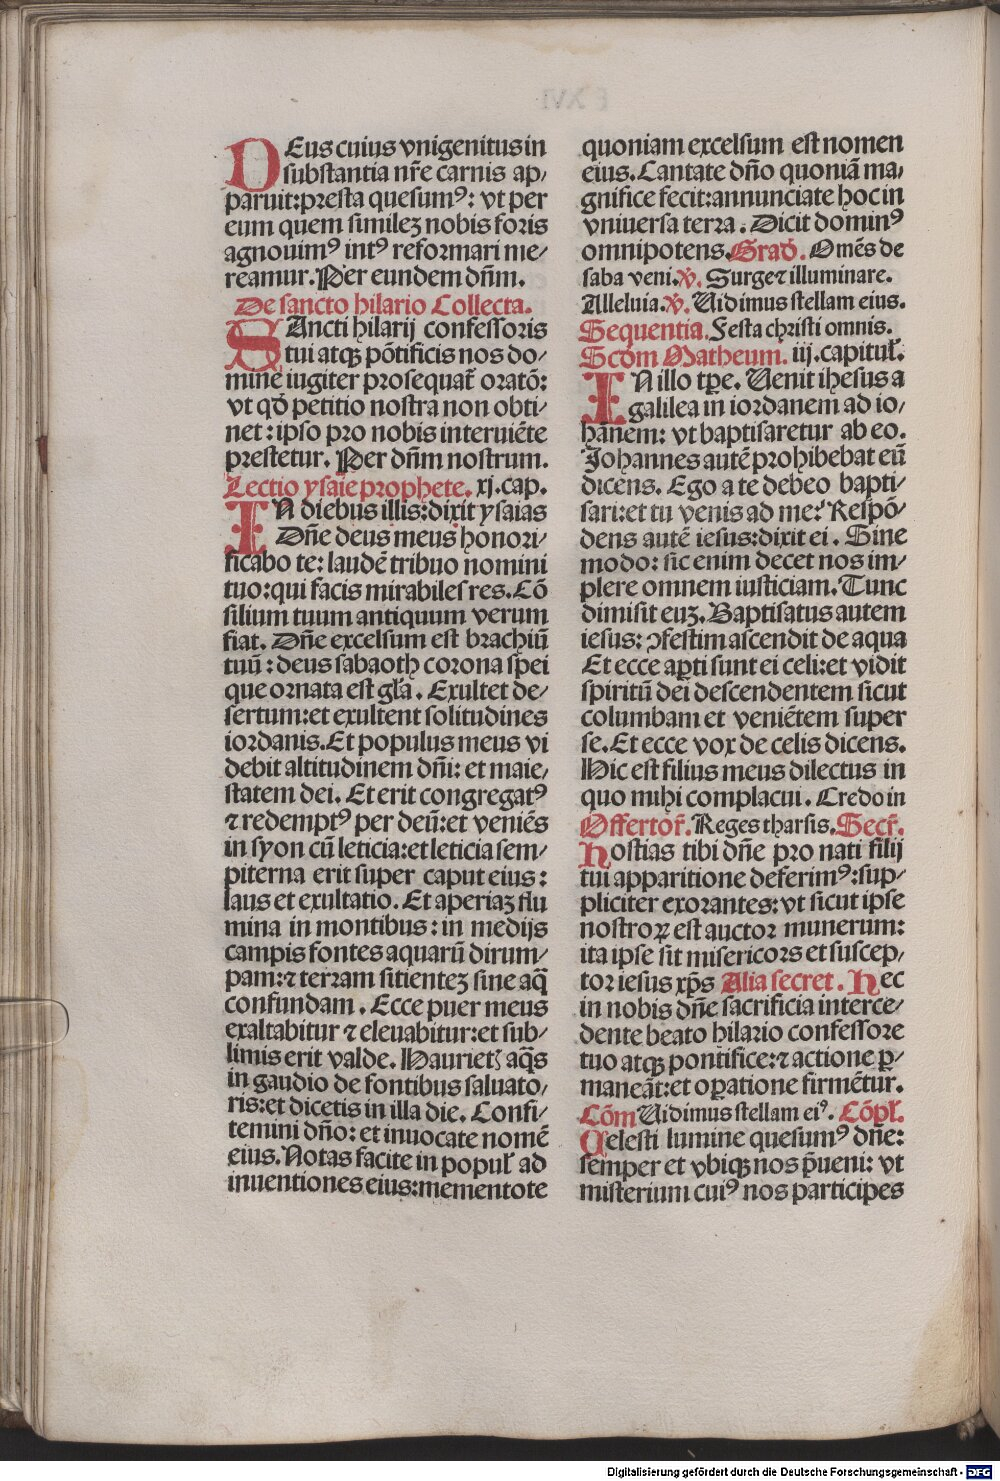 DEus cuius vnigenitus in
substantia nr̄e carnis ap/
paruit:presta quesumꝰ: vt per
eum quem similez nobis foris
agnouimꝰ intꝰ reformari me/
reamur. Per eundem dn̄m.
De sancto hilario Collecta.
SAncti hilarij confessoris
tui atqꝫ põtificis nos do/
mine iugiter prosequat᷑ oratō:
vt qd̄ petitio nostra non obti/
net : ipso pro nobis interuiẽte
prestetur. Per dn̄m nostrum.
Lectio ysaie prophete. xj.cap.
IN diebus illis:dixit ysaias
Dn̄e deus meus honori/
ficabo te: laudẽ tribuo nomini
tuo:qui facis mirabiles res. Cõ
silium tuum antiquum verum
fiat. Dn̄e excelsum est brachiũ
tuũ : deus sabaoth corona spei
que ornata est gl̄a. Exultet de/
sertum:et exultent solitudines
iordanis. Et populus meus vi
debit altitudinem dn̄i: et maie/
statem dei. Et erit congregatꝰ
⁊ redemptꝰ per deũ:et veniẽs
in syon cũ leticia:et leticia sem/
piterna erit super caput eius :
laus et exultatio. Et aperiaꝫ flu
mina in montibus : in medijs
campis fontes aquarũ dirum/
pam:⁊ terram sitientez sine aq̃
confundam . Ecce puer meus
exaltabitur ⁊ eleuabitur:et sub/
limis erit valde. Haurietꝭ aq̃s
in gaudio de fontibus saluato/
ris:et dicetis in illa die. Confi/
temini dn̄o: et inuocate nomẽ
eius. Notas facite in popul᷑ ad
inuentiones eius:mementote
quoniam excelsum est nomen
eius. Cantate dn̄o quoniã ma/
gnifice fecit:annunciate hoc in
vniuersa terra . Dicit dominꝰ
omnipotens. Grad̄. Omẽs de
saba veni. ℣. Surge⁊ illuminare.
Alleluia. ℣. Uidimus stellam eius.
Sequentia. Festa christi omnis.
Scd̄m Matheum. iij.capitul᷑.
IN illo tp̄e. Uenit ihesus a
galilea in iordanem ad io/
hãnem: vt baptisaretur ab eo.
Johannes autẽ prohibebat eũ
dicens. Ego a te debeo bapti/
sari:et tu venis ad me? Respõ/
dens autẽ iesus:dixit ei . Sine
modo: sic enim decet nos im/
plere omnem iusticiam. Tunc
dimisit euꝫ. Baptisatus autem
iesus: ɔfestim ascendit de aqua
Et ecce apꝑti sunt ei celi:et vidit
spiritũ dei descendentem sicut
columbam et veniẽtem super
se. Et ecce vox de celis dicens.
Hic est filius meus dilectus in
quo mihi complacui. Credo in
Offertor᷑. Reges tharsis. Secr᷑.
Hostias tibi dn̄e pro nati filij
tui apparitione deferimꝰ:sup/
pliciter exorantes: vt sicut ipse
nostroꝝ est auctor munerum:
ita ipse sit misericors et suscep/
tor iesus xp̄s Alia secret . Hec
in nobis dn̄e sacrificia interce/
dente beato hilario confessore
tuo atqꝫ pontifice:⁊ actione ꝑ/
maneãt:et oꝑatione firmẽtur.
Cõm Uidimus stellam eiꝰ. Cõpl᷑.
Celesti lumine quesumꝰ dn̄e:
semper et vbiqꝫ nos p̄ueni: vt
misterium cuiꝰ nos participes
Digitalisierung gefördert durch die Deutsche Forschungsgemeinschaft - DFG